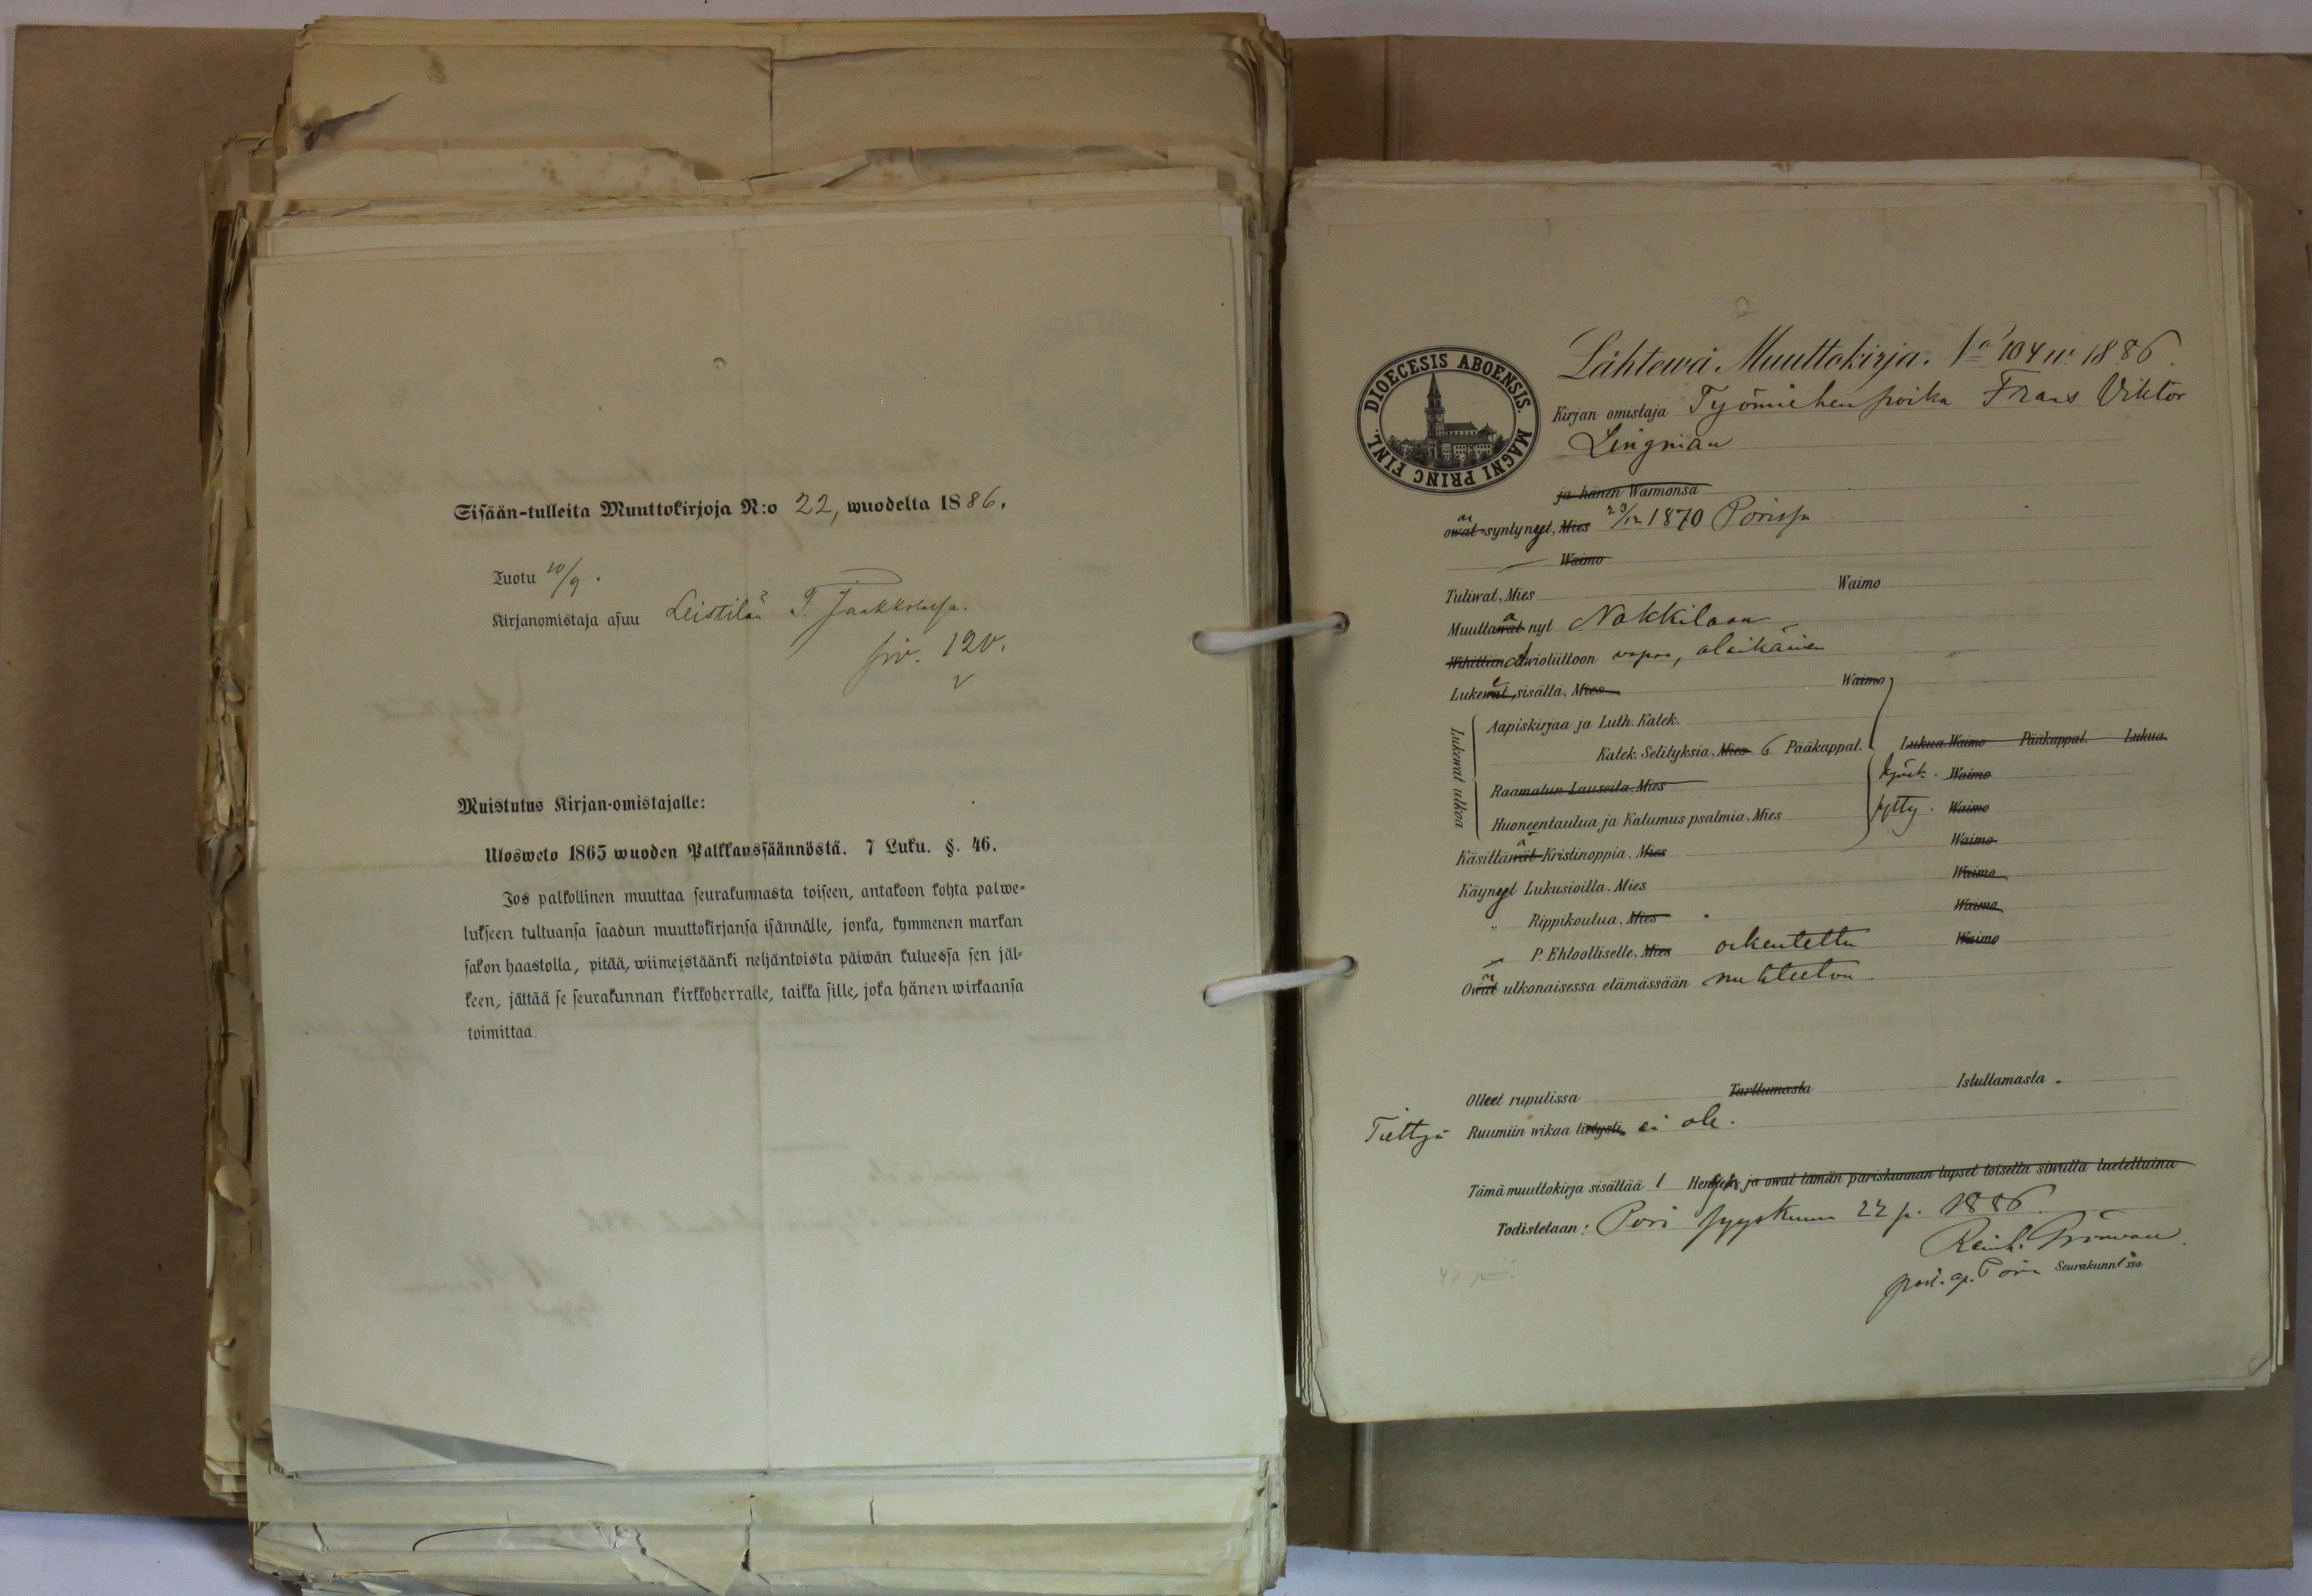 Sisään-tulleita Muuttokirjoja N:o 22, wuodelta 1886.
Tuotu 10/9.
Kirjanomistaja asuu Leistilän T. Jaakkolassa.
siv. 120.
Muistutus Kirjan-omistajalle:
Ulosweto 1865 wuoden Palkkaussäännöstä. 7 Luku. §. 46.
Jos palkollinen muuttaa seurakunnasta toiseen, antakoon kohta palwe-
lukseen tultuansa saadun muuttokirjansa isännälle, jonka, kymmenen markan
sakon haastolla, pitää, wiimeistäänki neljäntoista päiwän kuluessa sen jäl-
keen, jättää se seurakunnan kirkkoherralle, taikka sille, joka hänen wirkaansa
toimittaa.
DIOECESIS ABOENSIS. MAGNI PRINC FINL.
Lähtewä Muuttokirja. No 104 w. 1886.
Kirjan omistaja Työmiehen poika Frans Viktor
Lingman
ja hänen Waimonsa
owat syntynyt, Mies 23/12 1870 Porissa
Waimo
Tuliwat, Mies Waimo
Muuttawat nyt Nakkilaan
Wihittiin Awioliittoon vapaa, alaikäinen
Lukewat, sisältä. Mies Waimo
Lukewat ulkoa
Aapiskirjaa ja Luth. Katek.
Katek. Selityksiä, Mies 6 Pääkappal. Lukua. Waimo Pääkappal. Lukua.
Raamatun Lauseita, Mies Waimo
Huoneentaulua ja Katumus psalmia. Mies Waimo
Käsittäwät Kristinoppia. Mies Waimo
Käyneet Lukusioilla. Mies Waimo
" Rippikoulua, Mies Waimo
P. Ehtoolliselle. Mies oikeutettu Waimo
Owat ulkonaisessa elämässään nuhteeton
Olleet rupulissa Tarttumasta Istuttamasta.
Tiettyä Ruumiin wikaa tietysti ei ole.
Tämä muuttokirja sisältää 1 Henkeä, ja owat tämän pariskunnan lapset toisella siwulla luetelluina
Todistetaan: Pori syyskuun 22 p. 1886.
Reinh.
Porin Seurakunnissa